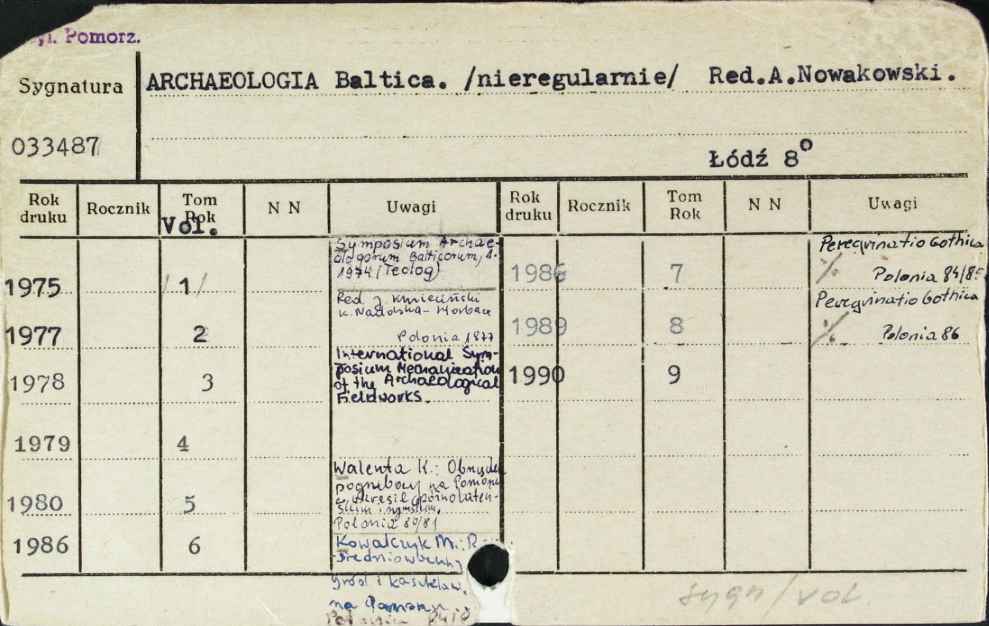 Pomorz.
Sygnatura
ARCHAEOLOGIA Baltica. /nieregularnie/ Red.A.Nowakowski.
033487
Łódź 8°
Rok druku Rocznik Tom Rok N N Uwagi Rok druku Rocznik Tom Rok N N Uwagi
Vol.
1975 /1/ Symposium Archae-
ologorum Balticorum,
1974 (Teolog)
1977 2 Red. J. Kmieciński
K. Nadolska-Horbacz
Polonia 1877
1978 3 International Sym-
posium Mechanization
of the Archaeological
Fieldworks.
1979 4
1980 5 Walenta K.: Obrządek
pogrzebowy na Pomorzu
w okresie późnolateń-
skim i rzymskim.
Polonia 80/81
1986 6 Kowalczyk M.:
średniowieczny
gród i kasztelan.
na
1986 7 Peregrinatio Gothica
% Polonia 84/85
1989 8 Peregrinatio Gothica
% Polonia 86
1990 9
sygn/vol